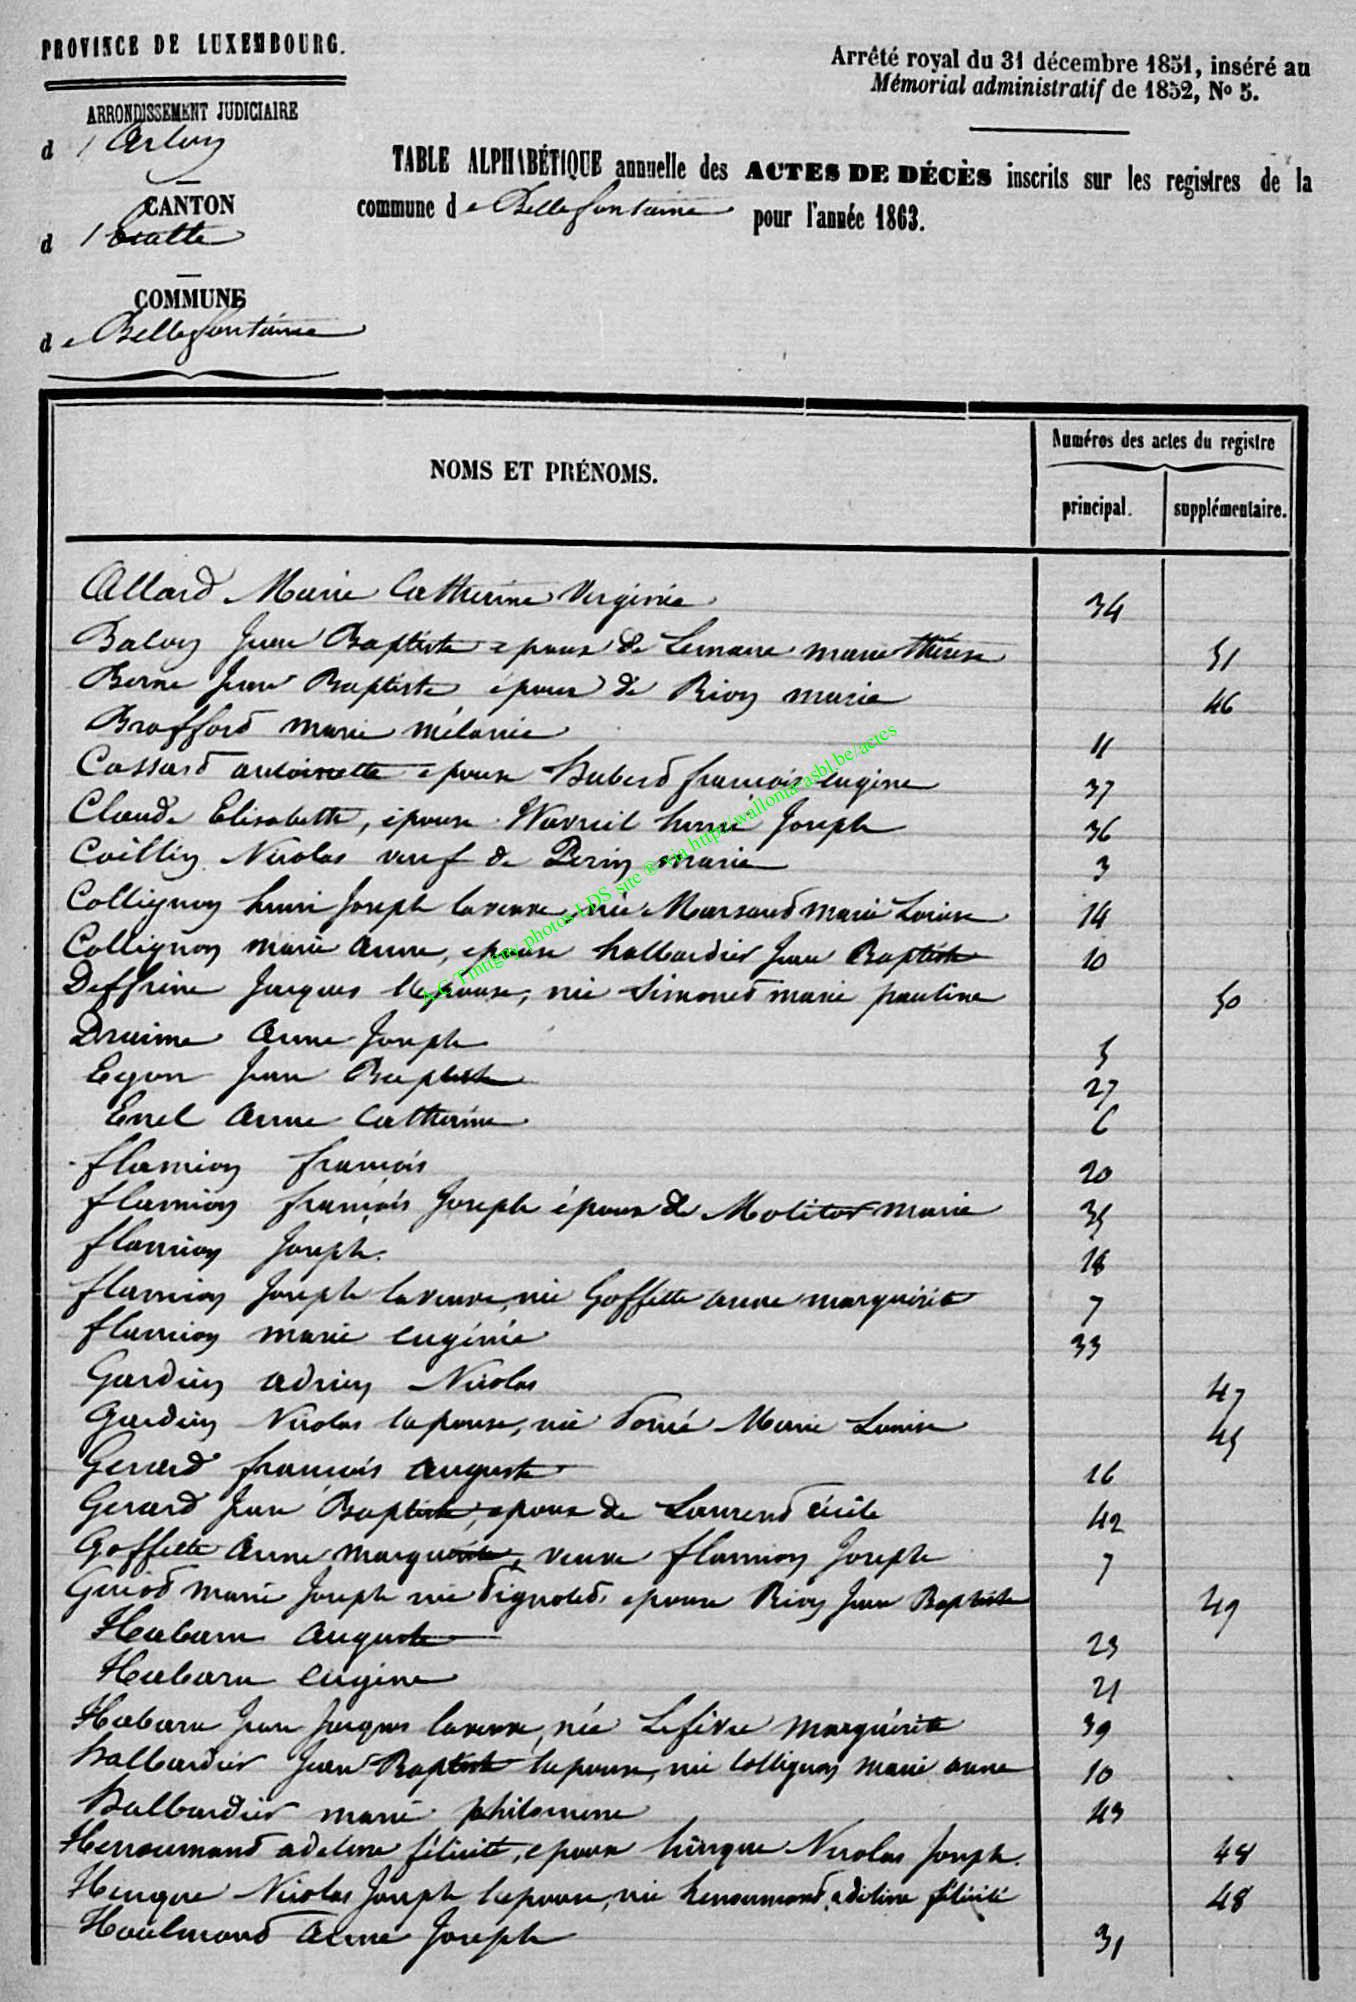 PROVINCE DE LUXEMBOURG.
Arrêté royal du 31 décembre 1851, inséré au
Mémorial administratif de 1852, No 5.
ARRONDISSEMENT JUDICIAIRE
d'Arlon
TABLE ALPHABÉTIQUE annuelle des ACTES DE DÉCÈS inscrits sur les registres de la
commune de Bellefontaine pour l'année 1863.
CANTON
d'Etalle
COMMUNE
de Bellefontaine
NOMS ET PRÉNOMS.
Numéros des actes du registre
principal.
supplémentaire.
Allard Marie Catherine Virginie 34
Balon Jean Baptiste epoux de Lemaire marie thérèse 51
Berne Jean Baptiste époux de Rion marie 46
Brafford marie mélanie 11
Cassard antoinette epouse hubert françois eugène 37
Claude Elisabette, épouse Wavreil henri Joseph 36
Coillin Nicolas veuf de Perin marie 3
Collignon henri Joseph la veuve née Marsaud marie Louise 14
Collignon marie anne, epouse halbardier Jean Baptiste 10
Deffrine Jacques l'épouse, née Simonet marie pauline 50
Draime anne Joseph 5
Egon Jean Baptiste 27
Enel anne Catherine 6
flamion françois 20
flamion françois Joseph époux de Molitor marie 35
flamion Joseph. 18
flamion Joseph la veuve, née Goffette anne marguérite 7
flamion marie eugénie 33
Gardien adrien Nicolas 47
Gardien Nicolas lepouse, née Marie Louise 45
Gerard françois auguste 16
Gerard Jean Baptiste, epoux de Laurend Cécile 42
Goffette anne marguerite, veuve flamion Joseph 7
marie Joseph née epouse Rion Jean Baptiste 49
Habaru auguste 23
Habaru eugène 21
Habaru Jean Jacques la veuve, née Lefèvre marguérite 39
halbardier Jean Baptiste lepouse, née Collignon marie anne 10
Halbardier marie philomene 43
adeline félicité, epouse hinque Nicolas Joseph. 48
Hinque Nicolas Joseph lepouse, née adeline félicité 48
Houlmond anne Joseph 31
A.G Tintigny photos LDS site ® via http://wallonia-asbl.be/actes